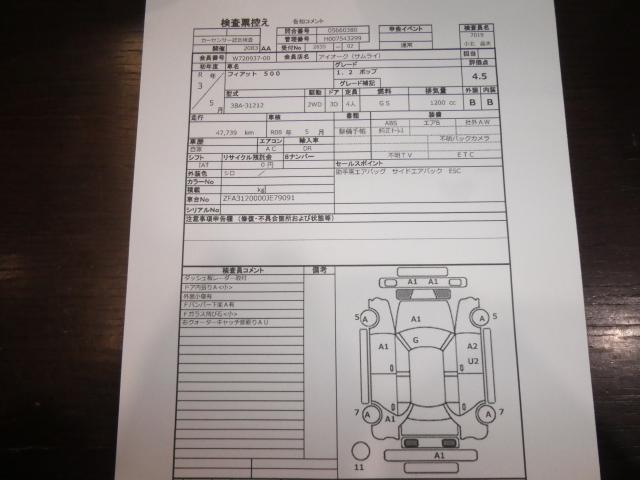 検査票控え
告知コメント
カーセンサー認定検査
問合番号 05660380
申告イベント
検査員名
7019
管理番号 H007543299
開催 2083 AA
受付No 2035 - 02
通常
会員番号 W720937-00
会員店名 アイオーク（サムライ）
担当
初年度 車名 グレード 評価点
R 年 フィアット 500 1.2 ポップ 4.5
3
グレード補記
5 月
型式 駆動 ドア 定員 燃料 排気量 外装 内装
3BA-31212 2WD 3D 4人 GS 1200 cc B B
走行 車検 書類 装備
47,739 km R08 年 5 月 整備手帳
ABS エアB 社外AW
純正ナビ
不明バックカメラ
車歴 エアコン 輸入車
自家 AC DR
不明TV ETC
シフト リサイクル預託金 Bナンバー
IAT 0円
セールスポイント
外装色 シロ ／
助手席エアバッグ サイドエアバック ESC
カラーNo
積載 kg
車台No ZFA3120000JE79091
シリアルNo
注意事項申告欄（修復・不具合箇所および状態等）
検査員コメント 備考
ダッシュ板レーダー取付
ドア内張りA<小>
外装小傷有
Fバンパー下部A有
Fガラス飛び石<小>
右クォーターキャッチ部廻りAU
A1 A1
5 A A1 A 5
G
A1 A2
U2
7 A A1 A 7
11
A1